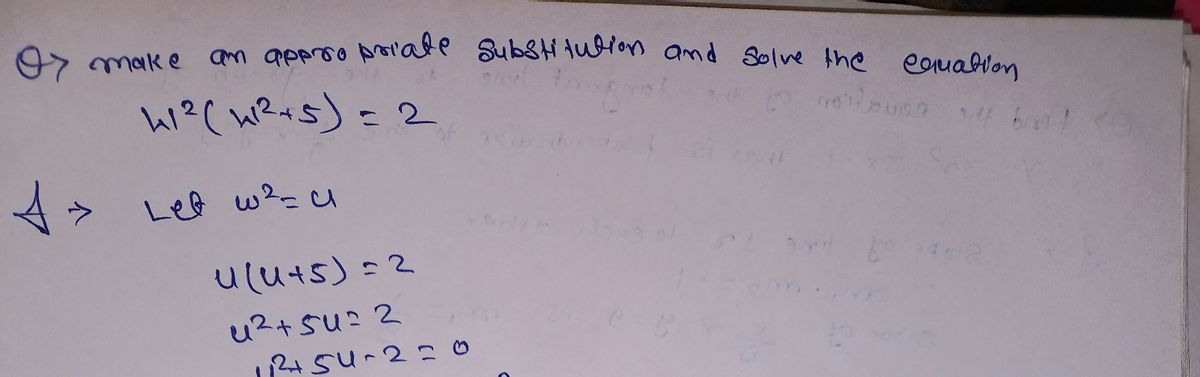 Q> make an appropriate substitution and solve the equation
w²(w²+5) = 2
A → Let w² = u
u(u+5) = 2
u²+5u = 2
u²+5u-2 = 0